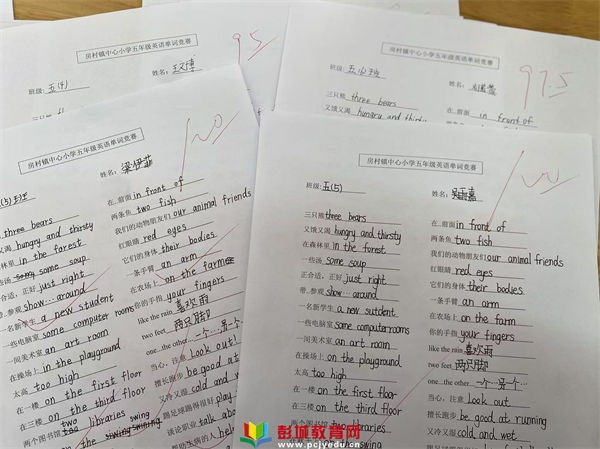 房村镇中心小学五年级英语单词竞赛
95
班级: 五(1)
姓名: 王文博
三只
房村镇中心小学五年级英语单词竞赛
97.5
班级:
姓名:
三只熊 three bears
在..前面 in front of
又饿又渴 hungry and thirsty
房村镇中心小学五年级英语单词竞赛
100
(5)班
姓名:
three bears
在..前面 in front of
hungry and thirsty
两条鱼 two fish
in the forest
我们的动物朋友们 our animal friends
一些汤 some soup
红眼睛 red eyes
正合适，正好 just right
它们的身体 their bodies
带..参观 show...around
一条手臂 an arm
一名新学生 a new student
在农场上 on the farm
一些电脑室 some computer rooms
你的手指 your fingers
一间美术室 an art room
like the rain 喜欢雨
在操场上 in the playground
two feet 两只脚
太高 too high
one...the other 一个…另一个…
在一楼 on the first floor
当心，注意 Look out!
在三楼 on the third floor
擅长跑步 be good at
两个图书馆 two libraries
又冷又湿 cold and
swing
踢足球踢得很好 play
on the
谈论职业 talk abou
帮助生病的人 hel
房村镇中心小学五年级英语单词竞赛
100
班级: 五(5)
姓名:
三只熊 three bears
在..前面 in front of
又饿又渴 hungry and thirsty
两条鱼 two fish
在森林里 in the forest
我们的动物朋友们 our animal friends
一些汤 some soup
红眼睛 red eyes
正合适，正好 just right
它们的身体 their bodies
带..参观 show...around
一条手臂 an arm
一名新学生 a new sutdent
在农场上 on the farm
一些电脑室 some computer rooms
你的手指 your fingers
一间美术室 an art room
like the rain 喜欢雨
在操场上 on the playground
two feet 两只脚
太高 too high
one...the other 一个…另一个…
在一楼 on the first floor
当心，注意 Look out
在三楼 on the third floor
擅长跑步 be good at running
两个图书馆 two libraries
又冷又湿 cold and wet
彭城教育网
www.pcjyedu.cn